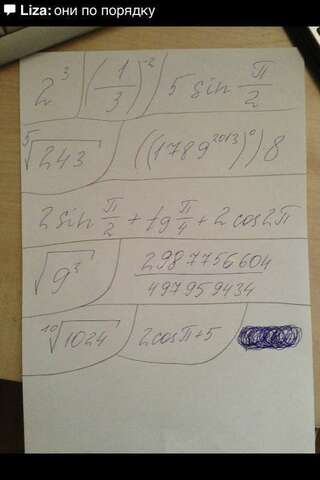 Liza: они по порядку
2³ (1/3)⁻² 5 sin π/2
⁵√243 ((1789²⁰¹³)⁰)8
2 sin π/2 + tg π/4 + 2 cos 2π
√9³ 2987756604/497959434
¹⁰√1024 2cosπ+5